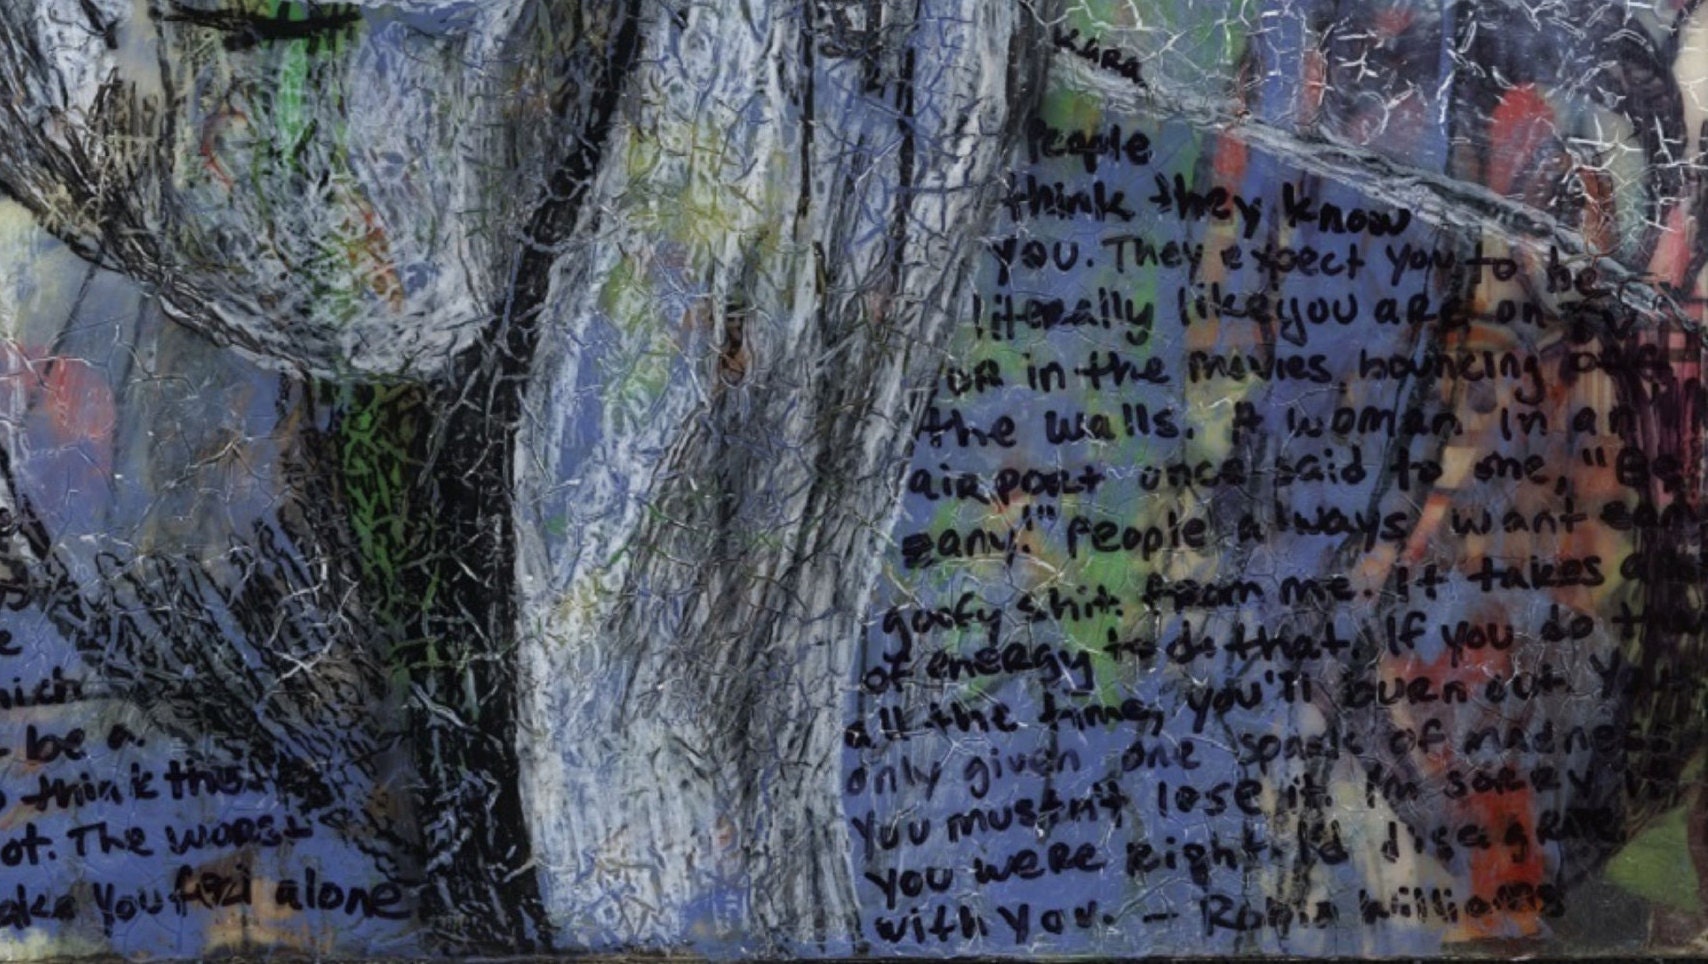 KARA
People
think they know
you. They expect you to be
literally like you are on TV
or in the movies bouncing off
the walls. A woman in an
airport once said to me, "Be
zany!" People always want zany
goofy shit from me. It takes a
of energy to do that. If you do
all the time, you'll burn out. You
only given one spark of madness
You mustn't lose it. I'm sorry
You were right. I'd disagree
with you. – Robin Williams
e
hich
be a
think the
ot. The worst
ake you feel alone